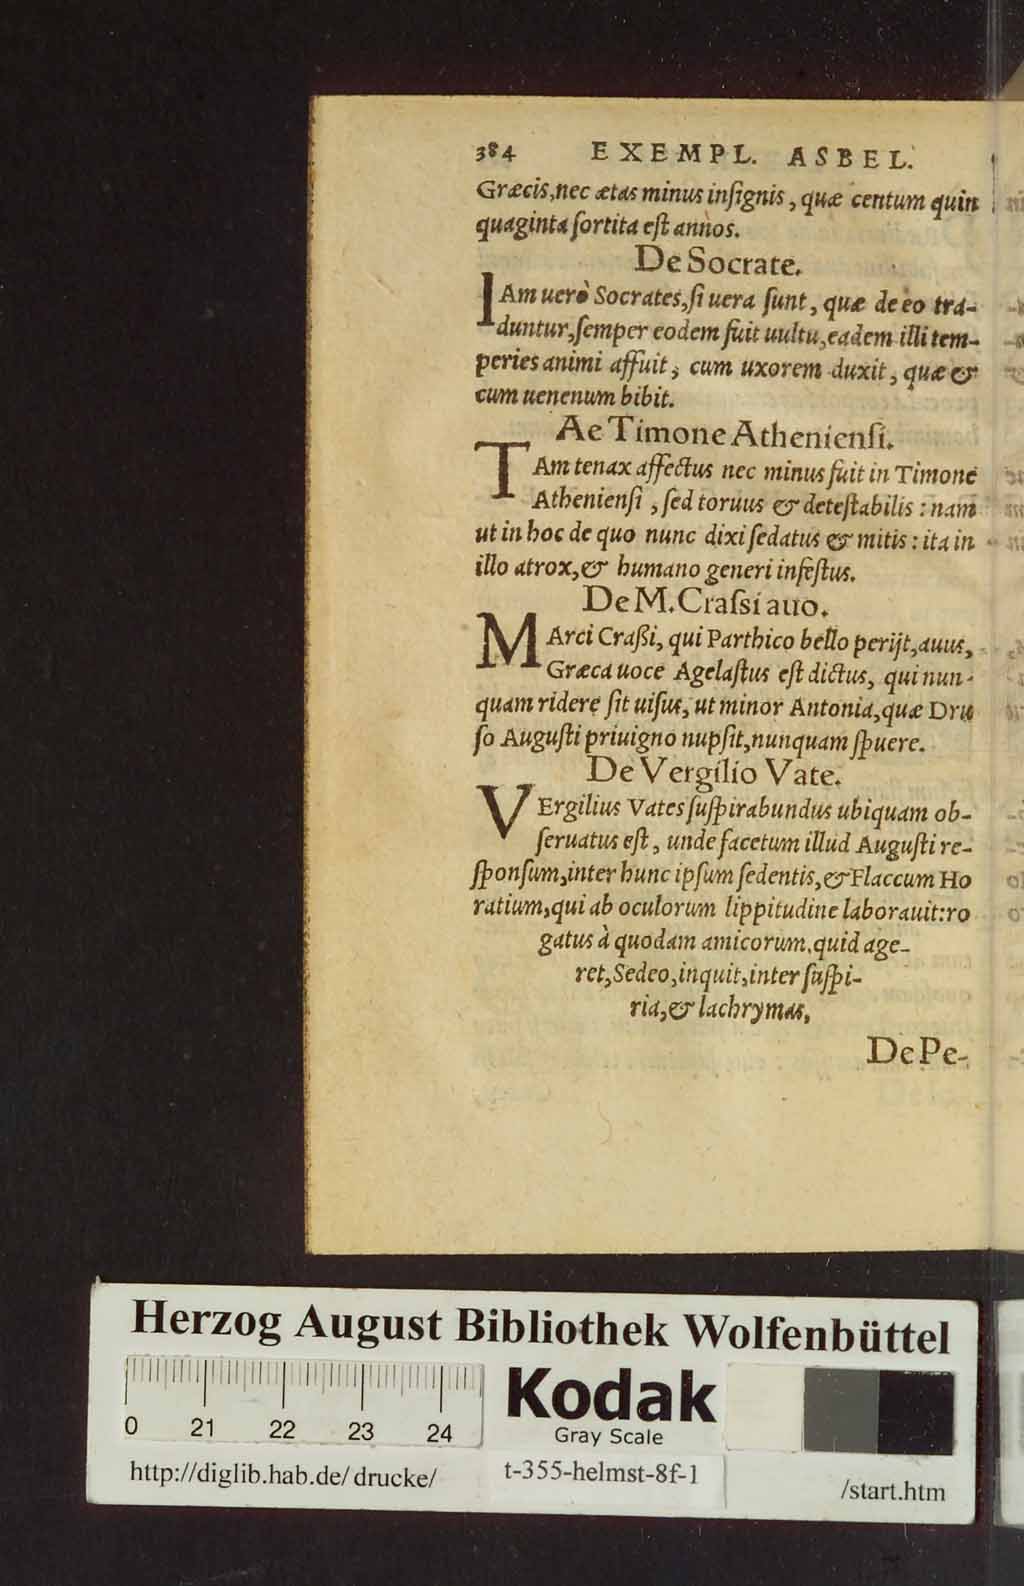 384 EXEMPL. ASBEL.
Græcis, nec ætas minus insignis, quæ centum quin
quaginta sortita est annos.
De Socrate.
IAm uerò Socrates, si uera sunt, quæ de eo tra-
duntur, semper eodem fuit uultu, eadem illi tem-
peries animi affuit, cum uxorem duxit, quæ &
cum uenenum bibit.
Ae Timone Atheniensi.
TAm tenax affectus nec minus fuit in Timone
Atheniensi, sed toruus & detestabilis: nam
ut in hoc de quo nunc dixi sedatus & mitis: ita in
illo atrox, & humano generi infestus.
De M. Crassi auo.
MArci Craßi, qui Parthico bello perijt, auus,
Græca uoce Agelastus est dictus, qui nun-
quam ridere sit uisus, ut minor Antonia, quæ Dru
so Augusti priuigno nupsit, nunquam spuere.
De Vergilio Vate.
VErgilius Vates suspirabundus ubiquam ob-
seruatus est, unde facetum illud Augusti re-
sponsum, inter hunc ipsum sedentis, & Flaccum Ho
ratium, qui ab oculorum lippitudine laborauit: ro
gatus à quodam amicorum, quid age-
ret, Sedeo, inquit, inter suspi-
ria, & lachrymas,
De Pe-
Herzog August Bibliothek Wolfenbüttel
0 21 22 23 24
Kodak
Gray Scale
http://diglib.hab.de/drucke/ t-355-helmst-8f-1 /start.htm